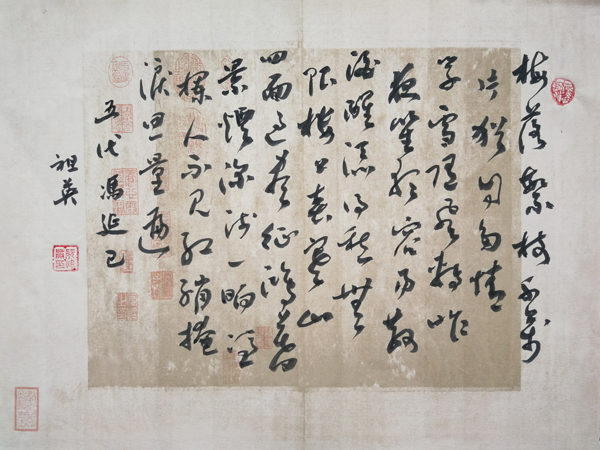 梅落繁枝千万
片犹自多情
学雪随风转昨
夜笙歌容易散
酒醒添得愁無
限楼上春寒山
四面过尽征鸿暮
景煙深浅一晌凭
栏人不见红绡掩
淚思量遍
五代馮延巳
祖英